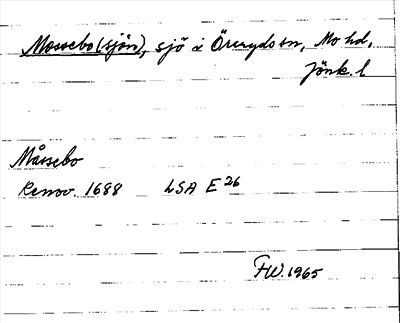 Mossebo(sjön), sjö i Öreryds sn, Mo hd,
Jönk. l
Måssebo
Renov. 1688 LSA E 26
FW. 1965